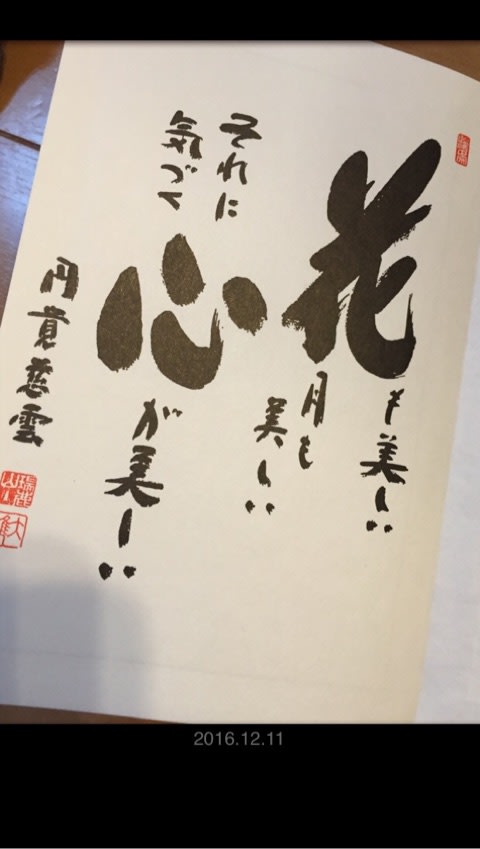 花も美しい
月も
美しい
それに
気づく
心が美しい
円覚慈雲
2016.12.11